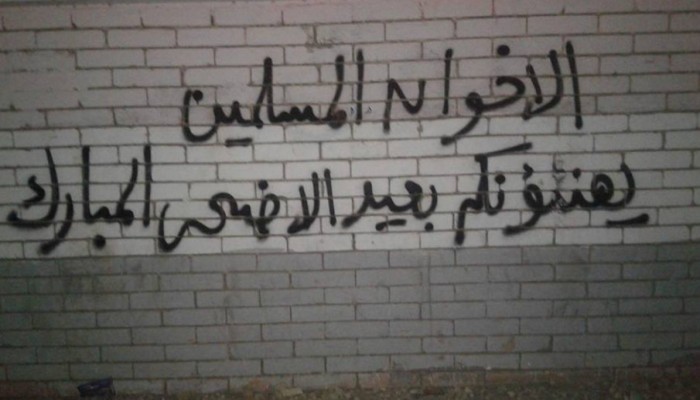 الاخوان المسلمين
يهنئونكم بعيد الاضحى المبارك